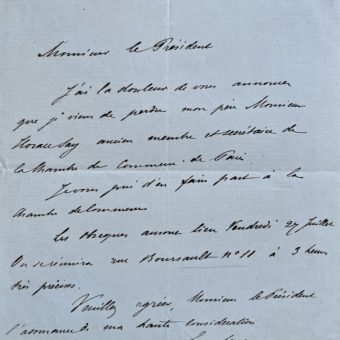 Monsieur le Président
J'ai la douleur de vous annoncer
que je viens de perdre mon père Monsieur
Horace Say ancien membre et secrétaire de
la Chambre de Commerce de Paris.
Je vous prie d'en faire part à la
Chambre de Commerce
Les Obsèques auront lieu Vendredi 27 Juillet
On se réunira rue Boursault No 11 à 3 heures
très précises.
Veuillez agréer, Monsieur le Président
l'assurance de ma haute considération